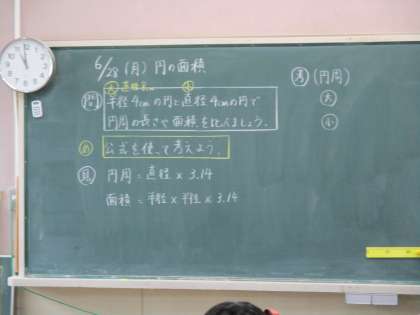 6/28 (月) 円の面積
大 直径8cm 小
問 半径4cmの円と直径4cmの円で
円周の長さや面積を比べましょう。
め 公式を使って考えよう。
見 円周=直径×3.14
面積=半径×半径×3.14
考 (円周)
大
小